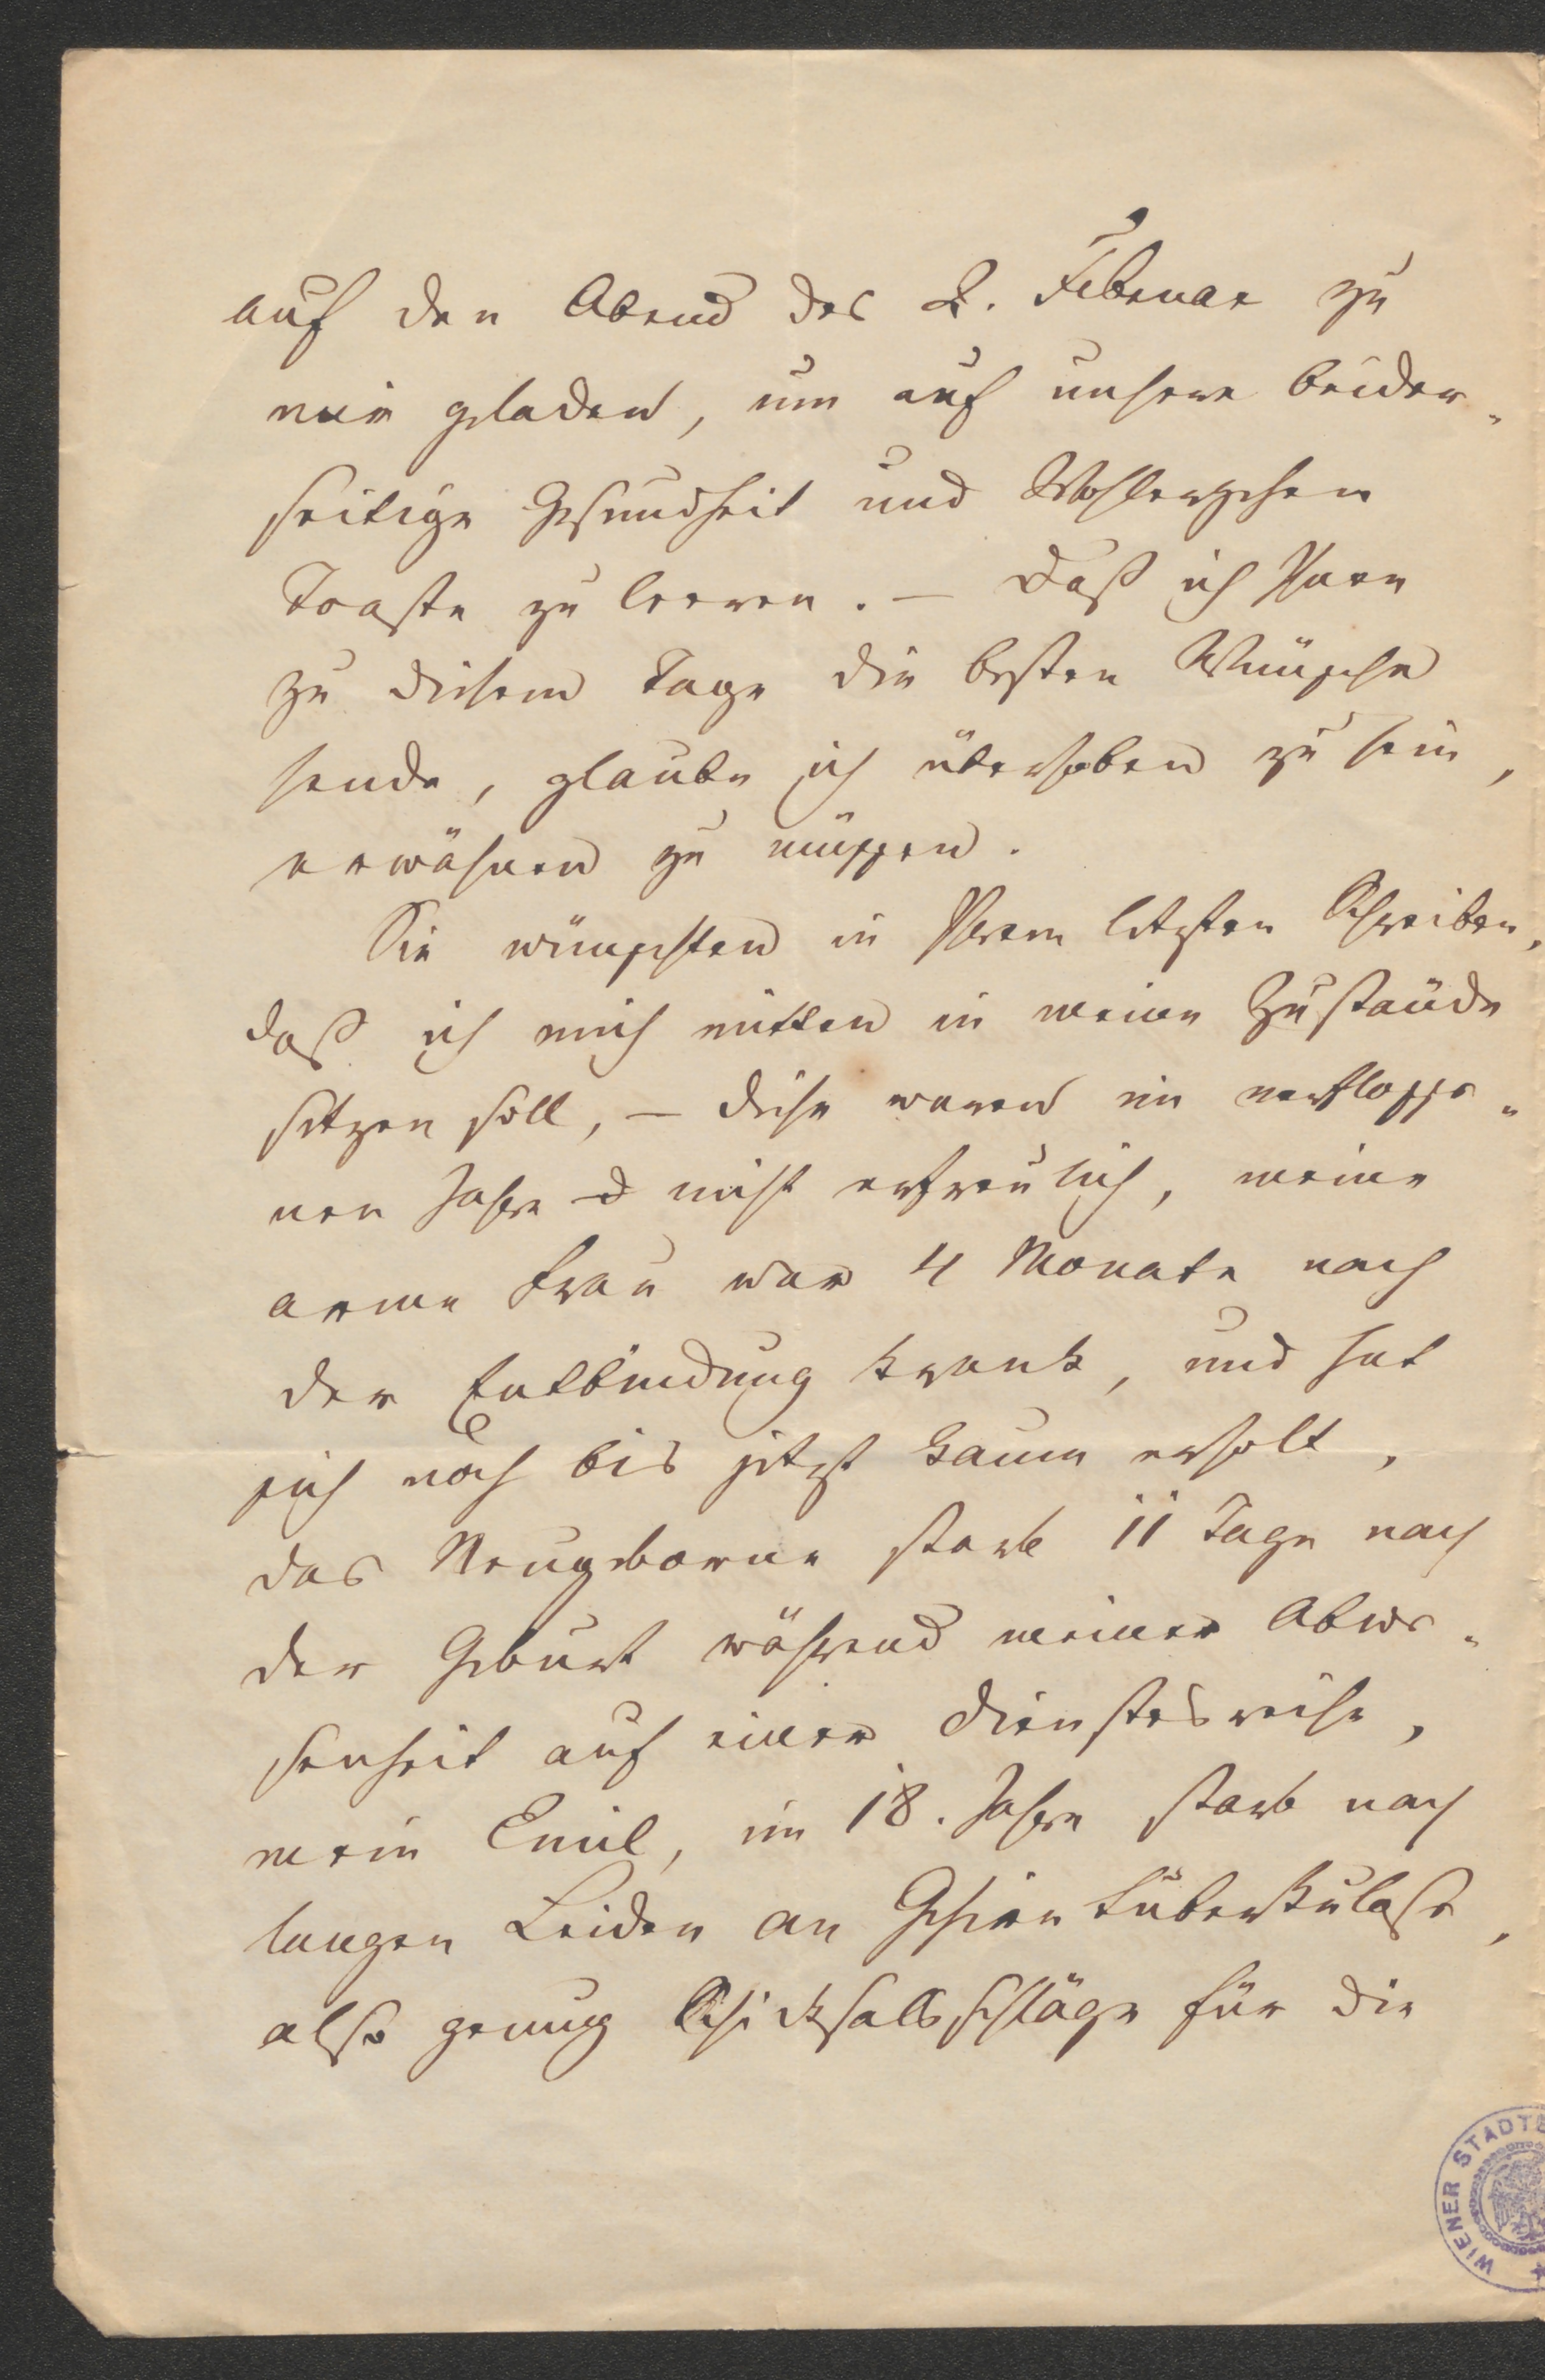 auf den Abend des 2. Februar zu
mir geladen, um auf unsere beider-
seitige Gesundheit und Wohlergehen
Toaste zu leeren. — Daß ich Ihnen
zu diesem Tage die besten Wünsche
sende, glaube ich überhoben zu sein,
erwähnen zu müssen.
Sie wünschten in Ihrem letzten Schreiben,
daß ich mich mitten in meine Zustände
setzen soll, — diese waren im verflosse-
nen Jahre nicht erfreulich, meine
arme Frau war 4 Monate nach
der Entbindung krank, und hat
sich noch bis jetzt kaum erholt,
das Neugeborne starb 11 Tage nach
der Geburt während meiner Abwe-
senheit auf einer Dienstesreise,
mein Emil, im 18. Jahre starb nach
langen Leiden an Gehirntuberkulose,
also genug Schicksalsschläge für die
WIENER STADTB